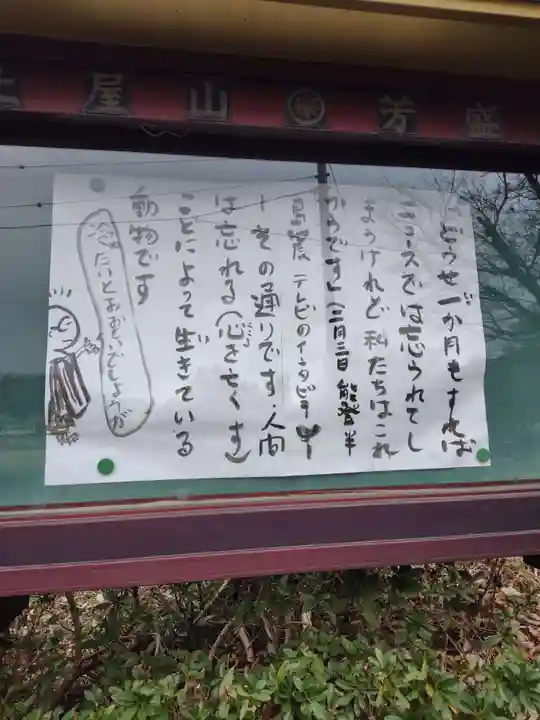 土屋山 芳盛
「どうせ一か月もすれば
ニュースでは忘られてし
まうけれど私たちはこれ
からです」(三月三日 能登半
島震 テレビのインタビュー
ーその通りです、人間
は忘れる(心を亡くす)
ことによって生きている
動物です
冷たいとおおもいでしょうが